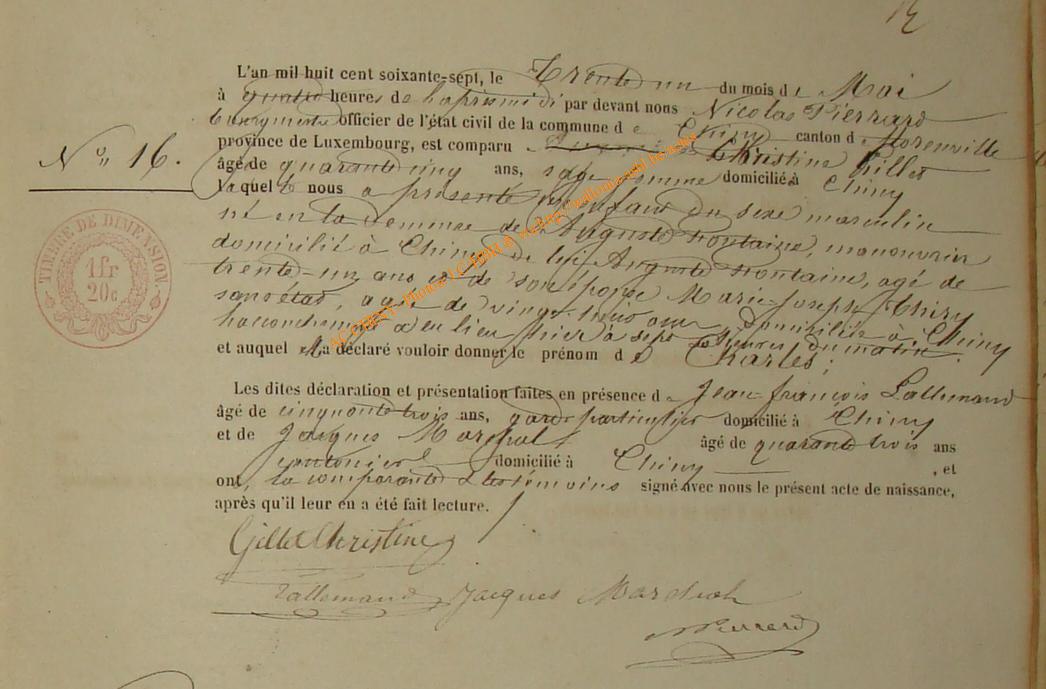 L'an mil huit cent soixante-sept, le Trente un du mois de Mai
à quatre heures de l'aprismidi par devant nous Nicolas Pierrard
Bourgmestre officier de l'état civil de la commune de Chiny canton de Florenville
province de Luxembourg, est comparu Christine Gillet
N° 16.
âgé de quarante cinq ans, sage femme domicilié à Chiny
laquel nous a présenté un enfant du sexe masculin
né en la demeure de Auguste Fontaine, manouvrier
domicilié à Chiny de lui Auguste Fontaine, agé de
trente-un ans et de son épouse Marie-Joseph Thiry
sans état, agée de vingt- ans, domiciliée à Chiny
l'accouchement a eu lieu hier à sept heures du matin.
et auquel Ma déclaré vouloir donner le prénom de Charles;
Les dites déclaration et présentation faites en présence de Jean françois Lallemand
âgé de cinquante trois ans, garde particulier domicilié à Chiny
et de Jacques Marchal âgé de quarante trois ans
cantonier domicilié à Chiny, et
ont, la comparante & les témoins signé avec nous le présent acte de naissance,
après qu'il leur en a été fait lecture.
Gillet Christine
Lallemand Jacques Marchal
NPierrard
TIMBRE DE DIMENSION
1 fr
20c